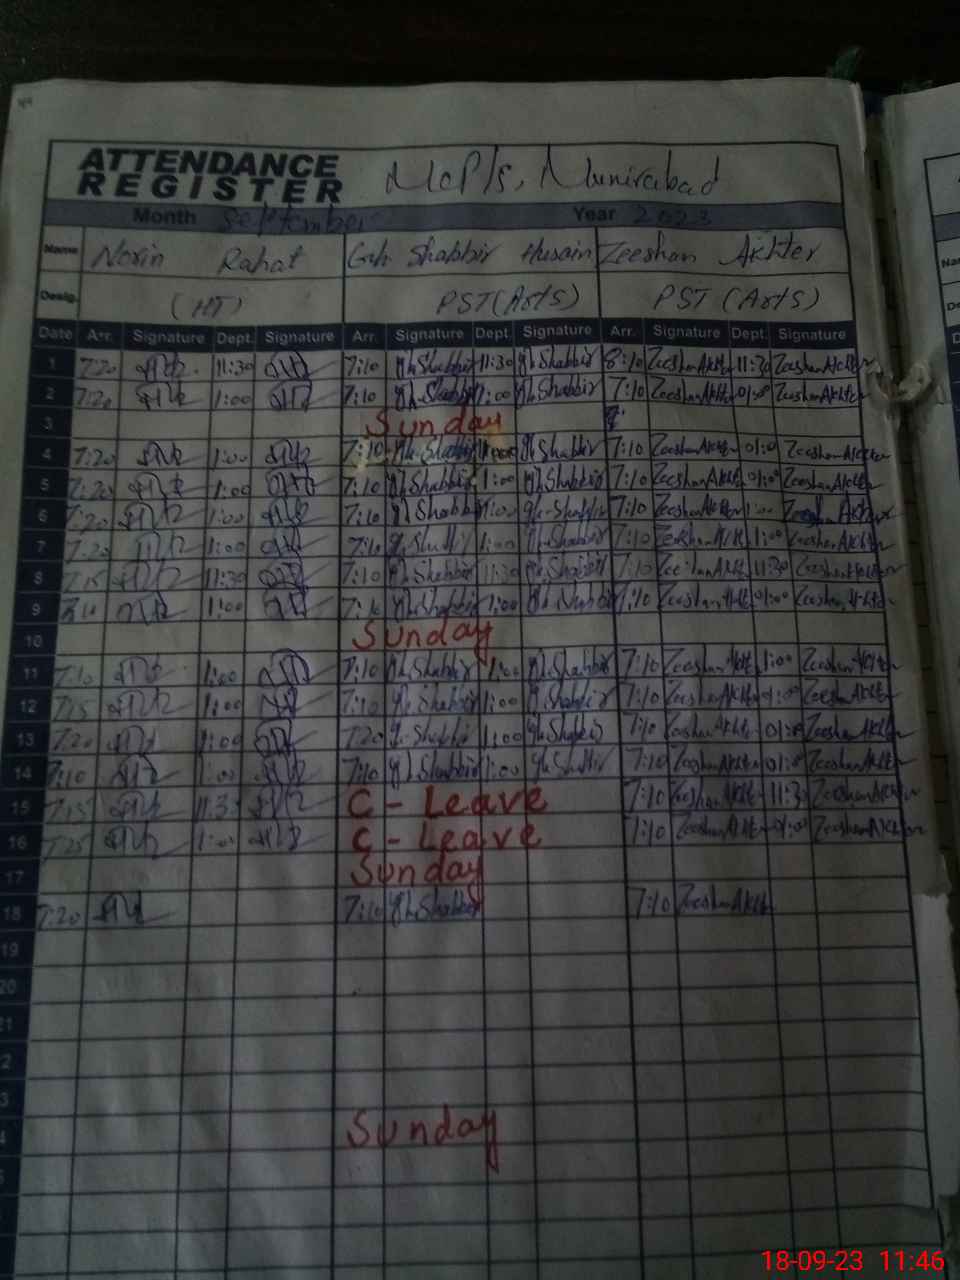 ATTENDANCE
REGISTER McP/s, Munirabad
Month September Year 2023
Name Norin Rahat Gh Shabbir Husain Zeeshan Akhter
Desig. (HT) PST(Arts) PST (Arts)
Date Arr. Signature Dept. Signature Arr. Signature Dept. Signature Arr. Signature Dept. Signature
1 7:20 11:30 7:10 Gh Shabbir 11:30 Gh Shabbir 8:10 ZeeshanAkhter 11:30 ZeeshanAkhter
2 7:20 1:00 7:10 Gh Shabbir 1:00 Gh Shabbir 7:10 ZeeshanAkhter 01:00 ZeeshanAkhter
3 Sunday
4 7:20 1:00 7:10 Gh Shabbir 1:00 Gh Shabbir 7:10 ZeeshanAkhter 01:00 ZeeshanAkhter
5 7:20 1:00 7:10 Gh Shabbir 1:00 Gh Shabbir 7:10 ZeeshanAkhter 01:00 ZeeshanAkhter
6 7:20 1:00 7:10 Gh Shabbir 1:00 Gh Shabbir 7:10 ZeeshanAkhter 1:00 Akhter
7 7:20 1:00 7:10 Gh Shabbir 1:00 Gh Shabbir 7:10 ZeeshanAkhter 1:00 ZeeshanAkhter
8 7:15 11:30 7:10 Gh Shabbir 11:30 Gh Shabbir 7:10 ZeeshanAkhter 11:30 ZeeshanAkhter
9 1:00 7:10 Gh Shabbir 1:00 Gh Shabbir 7:10 ZeeshanAkhter 01:00 ZeeshanAkhter
10 Sunday
11 7:10 1:00 7:10 Gh Shabbir 1:00 Gh Shabbir 7:10 ZeeshanAkhter 1:00 ZeeshanAkhter
12 7:15 1:00 7:10 Gh Shabbir 1:00 Gh Shabbir 7:10 ZeeshanAkhter 01:00 ZeeshanAkhter
13 7:20 1:00 7:20 Gh Shabbir 1:00 Gh Shabbir 7:10 ZeeshanAkhter 01:00 ZeeshanAkhter
14 7:10 1:00 7:10 Gh Shabbir 1:00 Gh Shabbir 7:10 ZeeshanAkhter 01:00 ZeeshanAkhter
15 7:15 11:30 C - Leave 7:10 ZeeshanAkhter 11:30 ZeeshanAkhter
16 7:25 1:00 C - Leave 7:10 ZeeshanAkhter 01:00 ZeeshanAkhter
17 Sunday
18 7:20 7:10 Gh Shabbir 7:10 ZeeshanAkhter
19
20
21
2
3
4 Sunday
18-09-23 11:46